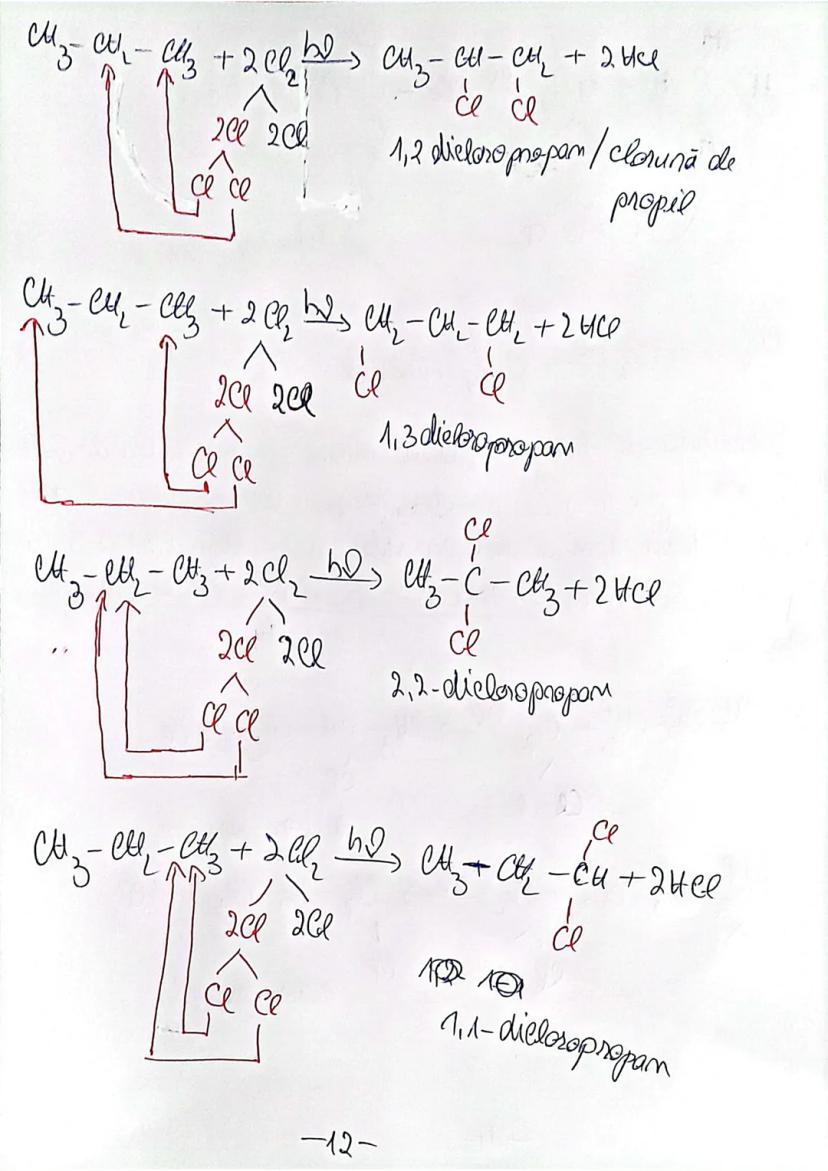 CH₃-CH₂-CH₃ + 2Cl₂ hν→ CH₃-CH-CH₂ + 2HCl
Cl Cl
2Cl 2Cl
Cl Cl
1,2 dicloropropan/clorură de
propil
CH₃-CH₂-CH₃ + 2Cl₂ hν→ CH₂-CH₂-CH₂ + 2HCl
Cl Cl
2Cl 2Cl
Cl Cl
1,3 dicloropropan
Cl
CH₃-CH₂-CH₃ + 2Cl₂ hν→ CH₃-C-CH₃ + 2HCl
Cl
2Cl 2Cl
Cl Cl
2,2-dicloropropan
Cl
CH₃-CH₂-CH₃ + 2Cl₂ hν→ CH₃-CH₂-CH + 2HCl
Cl
2Cl 2Cl
Cl Cl
1,1-dicloropropan
-12-